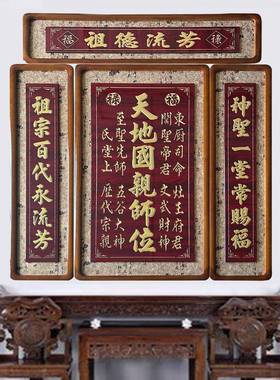 福 祖德流芳 禄
神聖一堂常賜福
福
禄
東厨司命 灶王府君
聞聖帝君 文武財神
天地國親師位
至聖先師 五谷大神
氏堂上 歷代宗親
祖宗百代永流芳